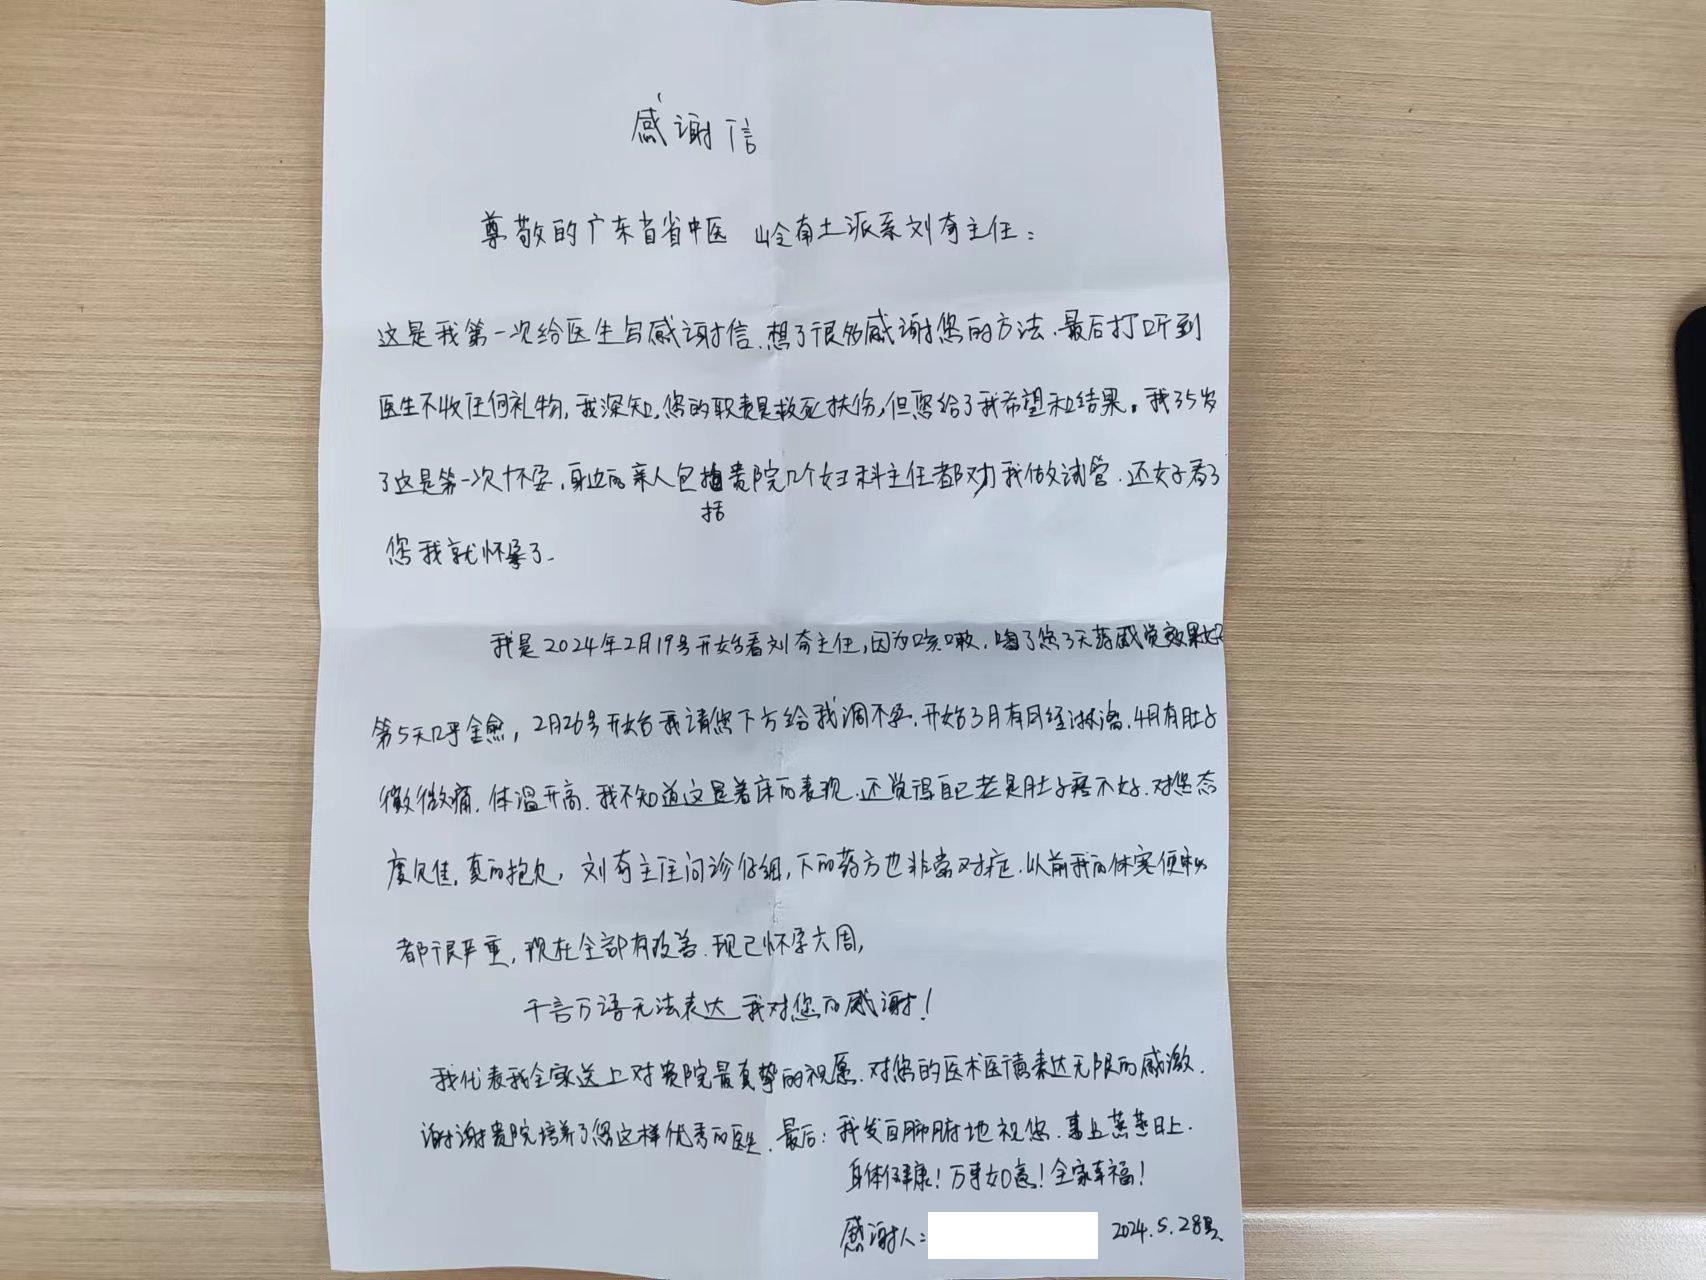 感谢信
尊敬的广东省省中医 岭南土派系刘奇主任：
这是我第一次给医生写感谢信.想了很多感谢您的方法.最后打听到
医生不收任何礼物,我深知,您的职责是救死扶伤,但您给了我希望和结果。我35岁
了这是第一次怀孕,身边的亲人包括贵院几个妇科主任都劝我做试管.还好看了
您我就怀孕了.
我是2024年2月19号开始看刘奇主任,因为咳嗽.喝了您3天药感觉效果好
第5天几乎全愈,2月26号开始我请您下方给我调不孕.开始3月有月经淋漓.4月有肚子
微微痛.体温升高.我不知道这是着床的表现.还觉得自己老是肚子疼不好.对您态
度欠佳,真的抱歉,刘奇主任问诊仔细,下的药方也非常对症.以前我的体寒便秘
都很严重,现在全部有改善.现已怀孕六周,
千言万语无法表达我对您的感谢!
我代表我全家送上对贵院最真挚的祝愿.对您的医术医德表达无限的感激.
谢谢贵院培养了您这样优秀的医生.最后:我发自肺腑地祝您.事业蒸蒸日上.
身体健康!万事如意!全家幸福!
感谢人: 2024.5.28号